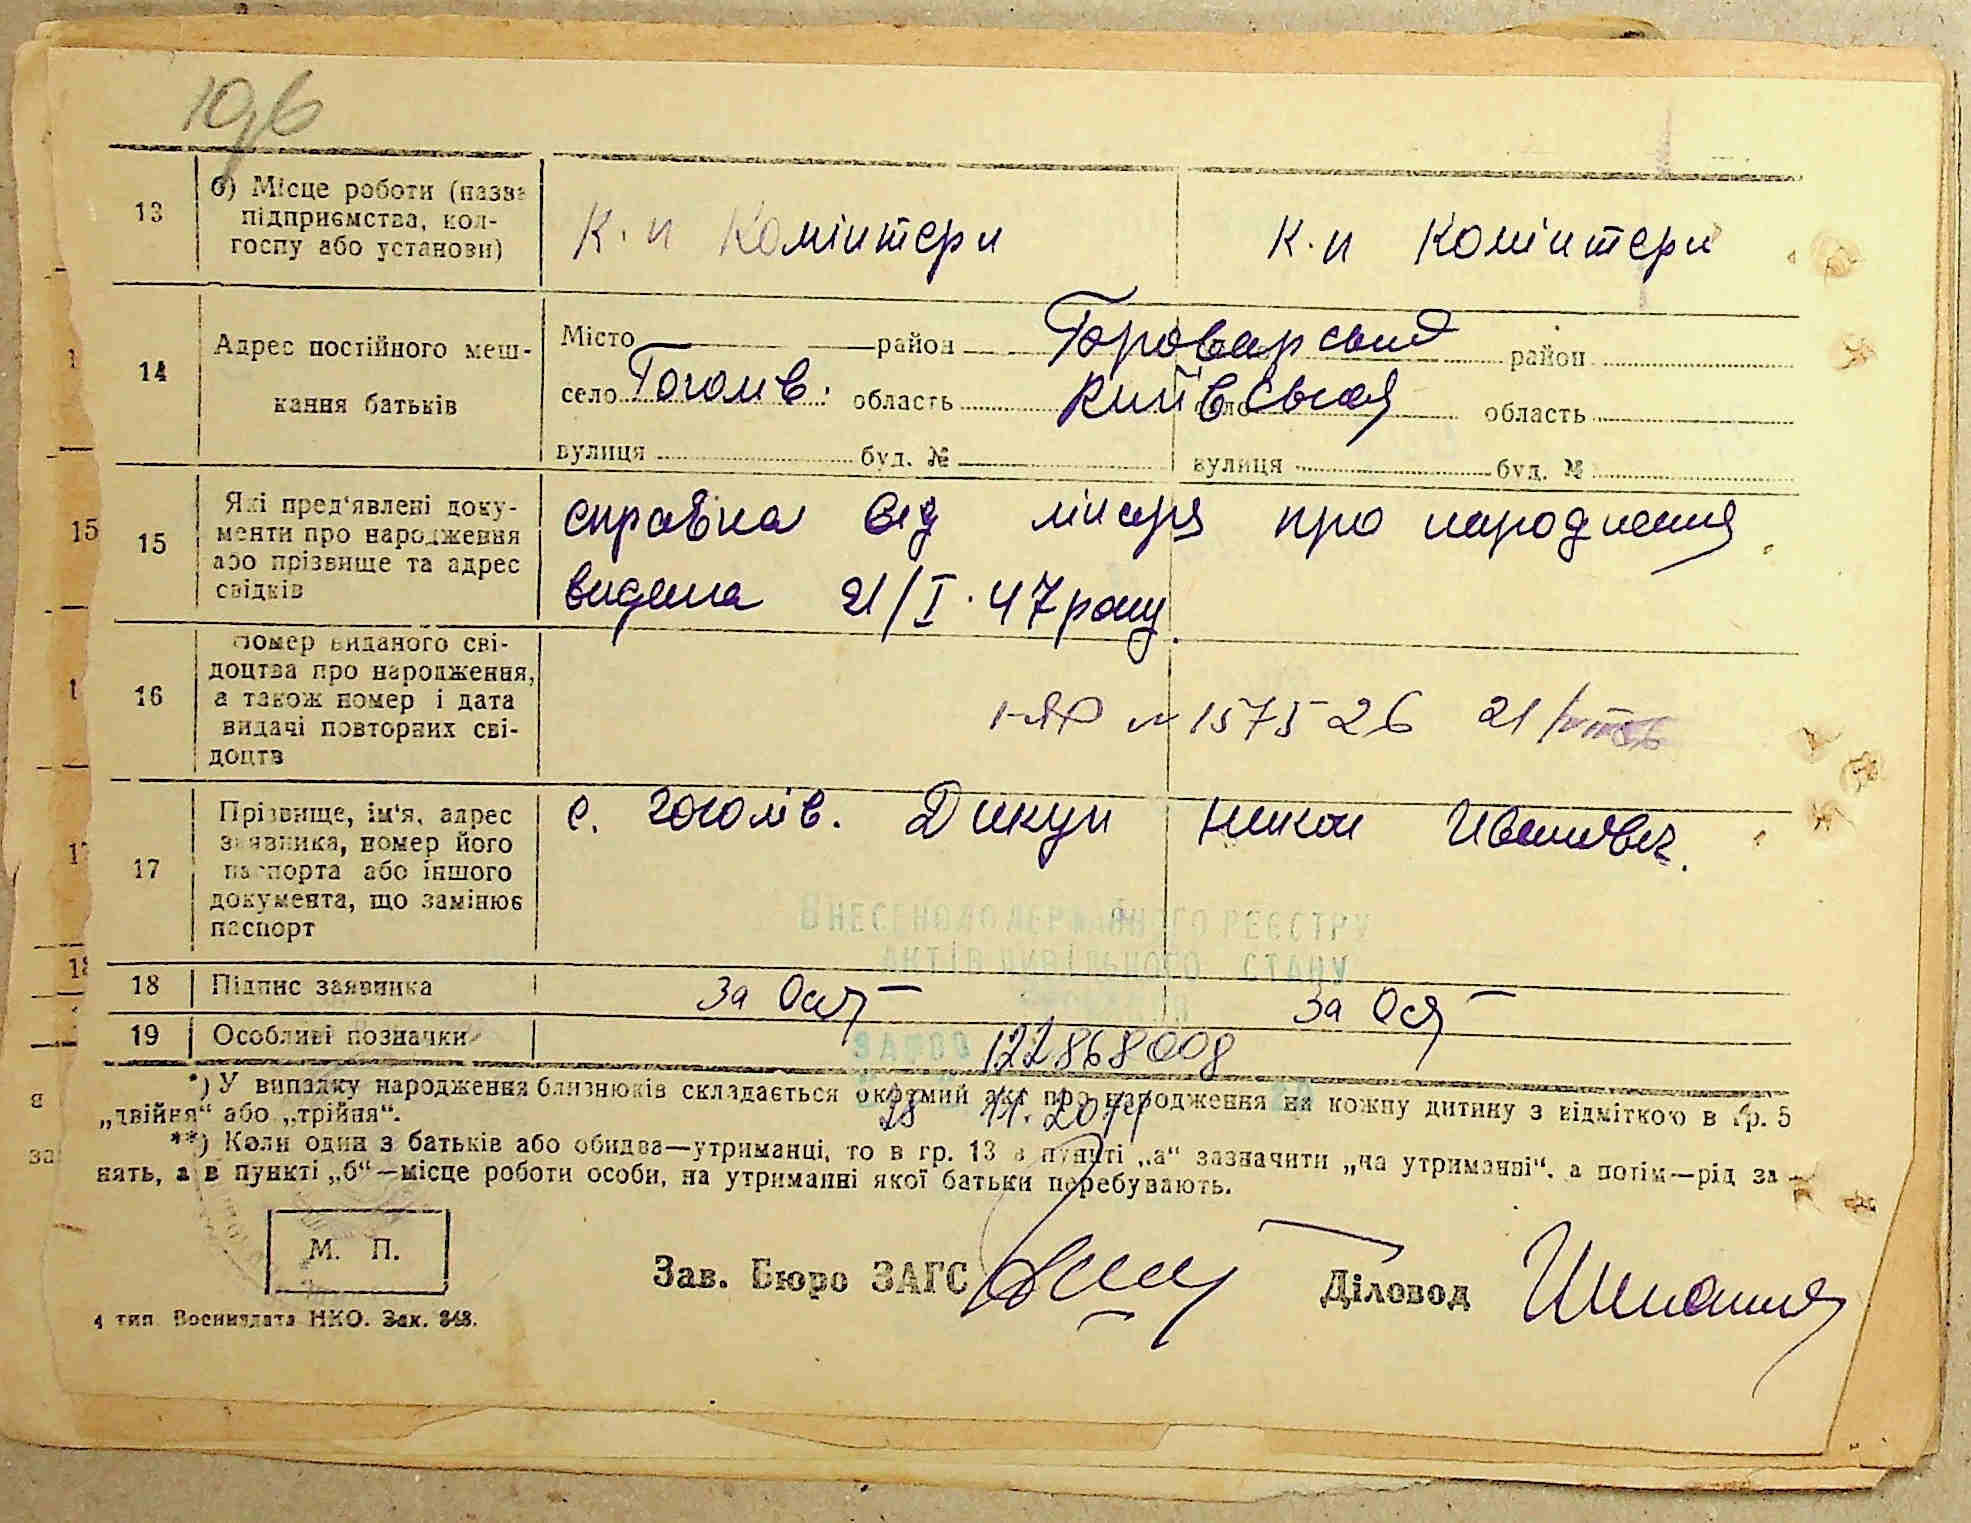 196
13
б) Місце роботи (назва
підприємства, кол-
госпу або установи)
к-п Комінтерн
к-п Комінтерн
14
Адрес постійного меш-
кання батьків
Місто район Броварський район
село Гоголів. область Київська область
вулиця буд. № вулиця буд. №
15
Які пред'явлені доку-
менти про народження
або прізвище та адрес
свідків
справка від лікаря про народження
видана 21/I-47 року.
16
Номер виданого сві-
доцтва про народження,
а також номер і дата
видачі повторних сві-
доцтв
I-ЯР № 157526 21/
17
Прізвище, ім'я, адрес
заявника, номер його
паспорта або іншого
документа, що замінює
паспорт
с. Гоголів. Дикун Никон Иванович.
ВНЕСЕНО ДО ДЕРЖАВНОГО РЕЄСТРУ
АКТІВ ЦИВІЛЬНОГО СТАНУ
ГРОМАДЯН
18
Підпис заявника
За
За
19
Особливі позначки
ЗА № 00 122868008
28 11. 2011
*) У випадку народження близнюків складається окремий акт про народження на кожну дитину з відміткою в гр. 5
„двійня“ або „трійня“.
**) Коли один з батьків або обидва—утриманці, то в гр. 13 в пункті „а“ зазначити „на утриманні“, а потім—рід за-
нять, а в пункті „б“—місце роботи особи, на утриманні якої батьки перебувають.
М. П.
Зав. Бюро ЗАГС
Діловод
4 тип. Воениздата НКО. Зак. 348.